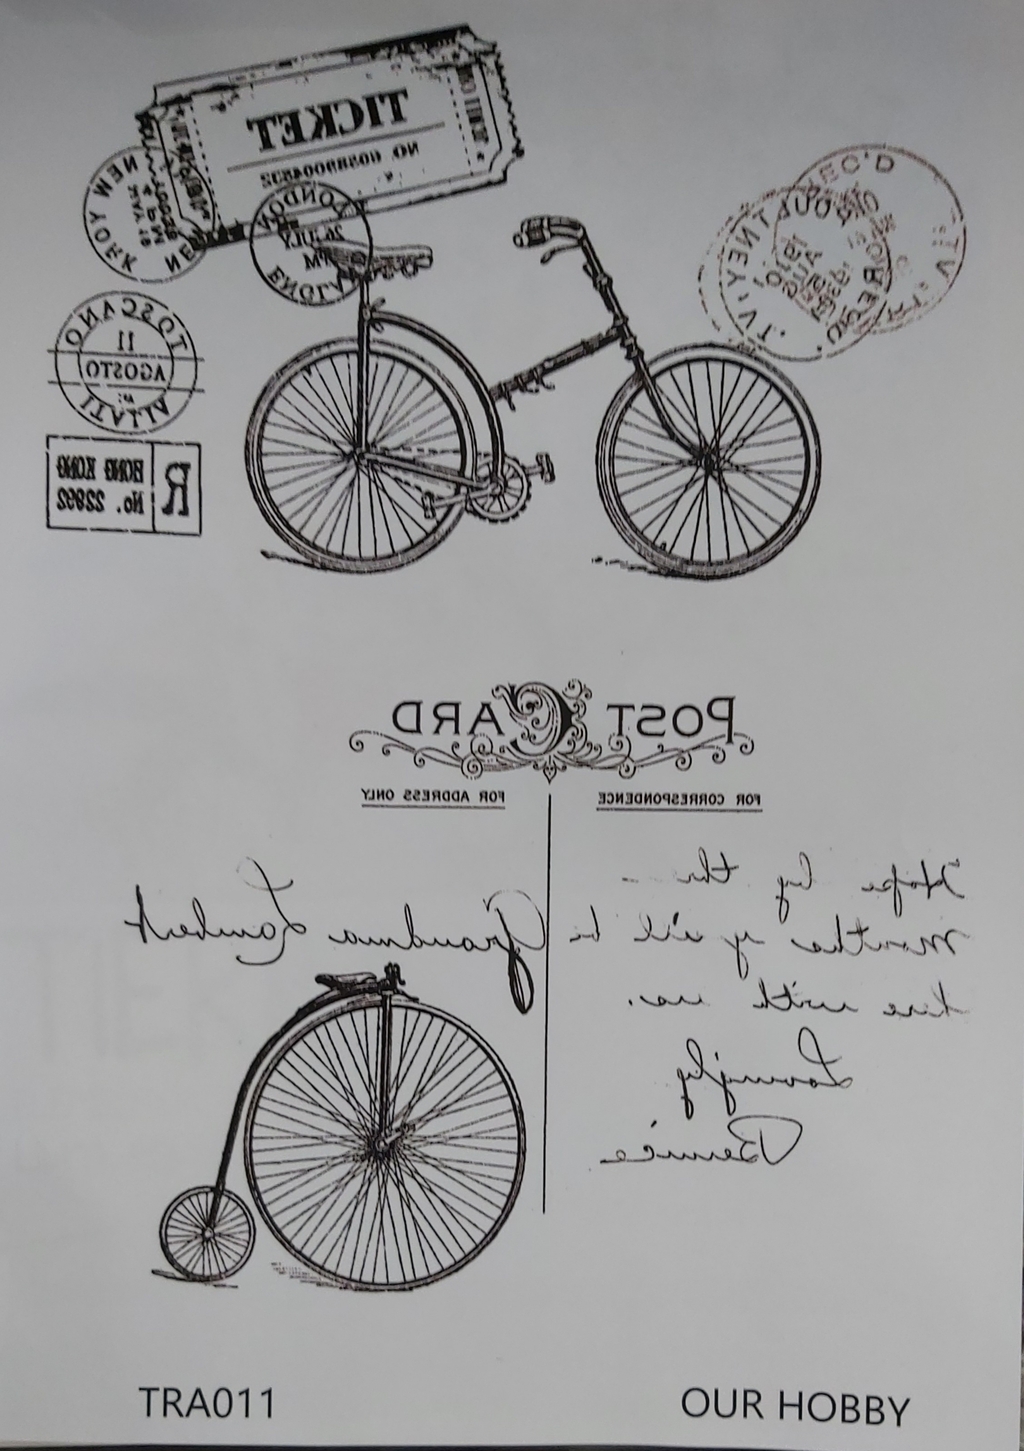 TICKET
NO. 00589004532
NEW YORK
LONDON
ENGLAND
TOSCANO
11
AGOSTO
ITALIA
R HONG KONG
No. 22862
REC'D
POST CARD
FOR CORRESPONDENCE
FOR ADDRESS ONLY
Hope by this
Months y'all be
here with us.
Lovingly
Bernice
Grandma Lambert
TRA011
OUR HOBBY